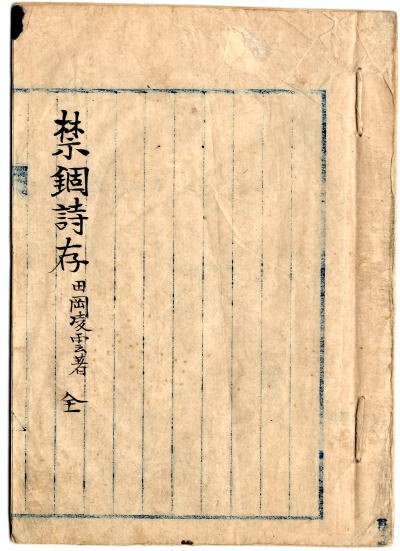 禁錮詩存 田岡凌雲著 全